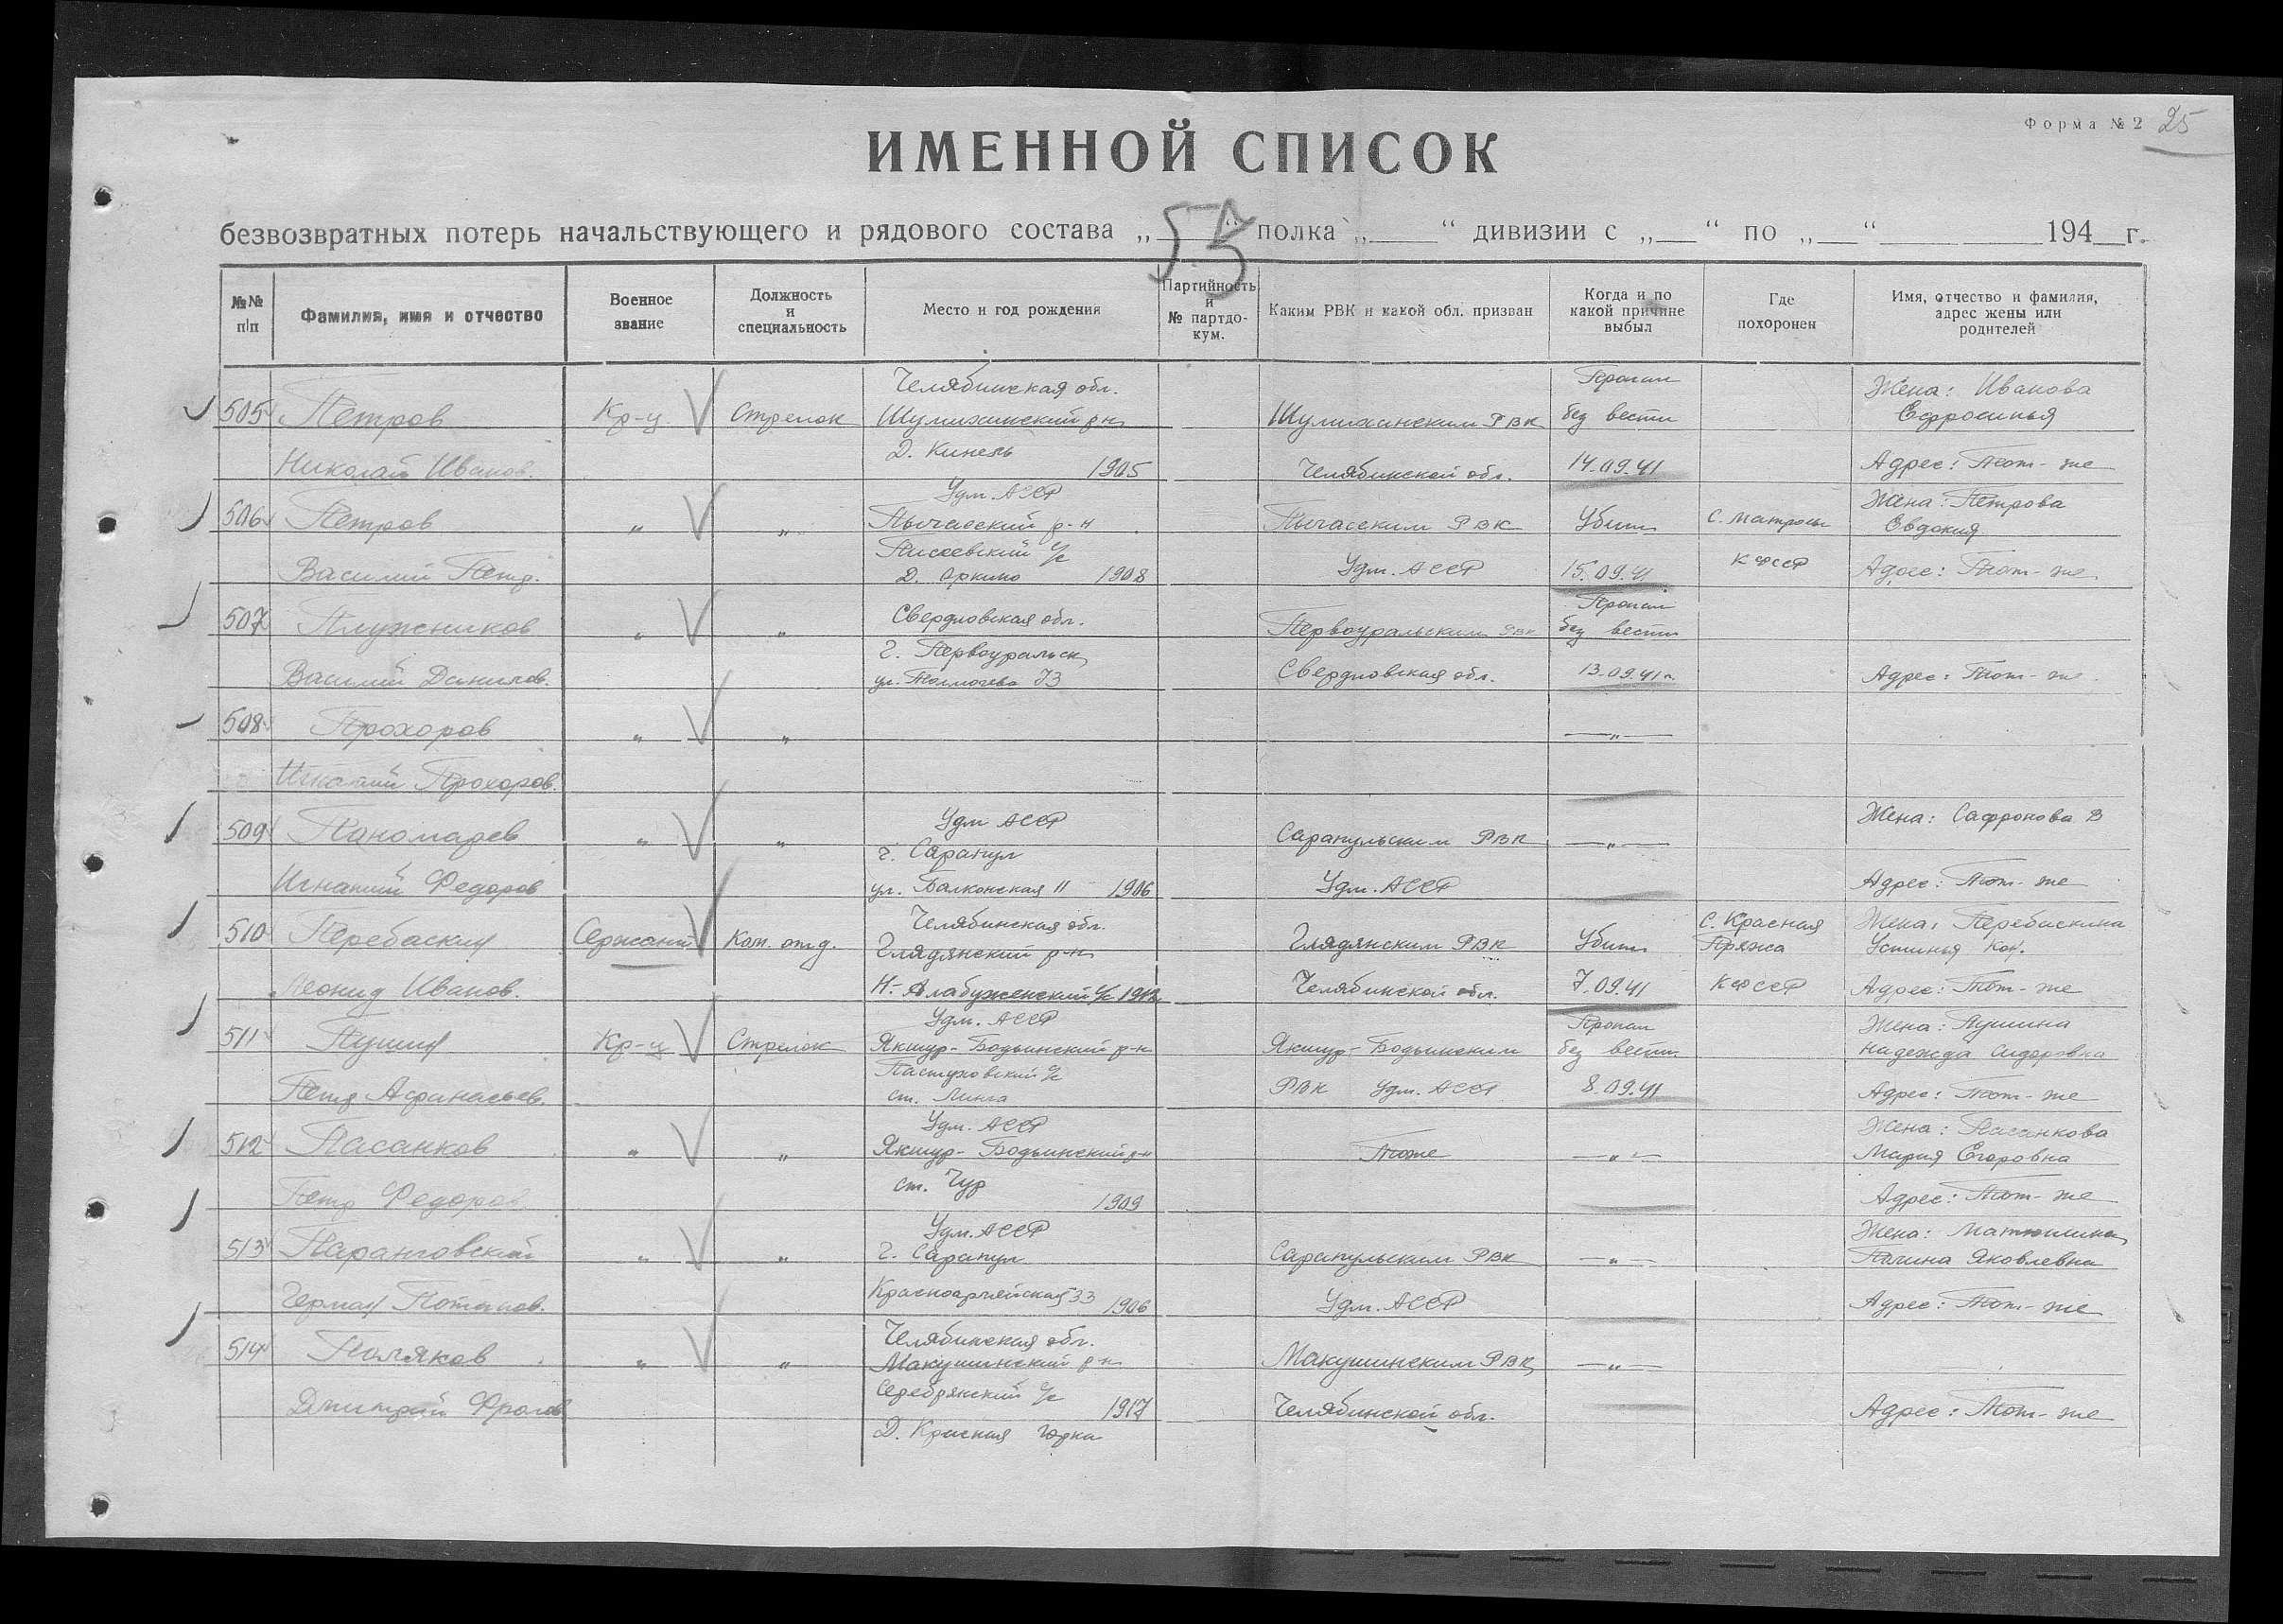 Форма № 2 25
ИМЕННОЙ СПИСОК
безвозвратных потерь начальствующего и рядового состава „ 55 “ полка „ “ дивизии с „ “ по „ “ 194 г.
№№ п|п Фамилия, имя и отчество Военное звание Должность и специальность Место и год рождения Партийность и № партдокум. Каким РВК и какой обл. призван Когда и по какой причине выбыл Где похоронен Имя, отчество и фамилия, адрес жены или родителей
Челябинская обл. Пропал Жена: Иванова
505 Петров Кр-ц Стрелок Шумихинский р-н Шумихинским РВК без вести Ефросинья
Д. Кинель
Николай Иванов. 1905 Челябинской обл. 14.09.41 Адрес: Тот-же
Удм. АССР Жена: Петрова
506 Петров „ „ Пычасский р-н Пычасским РВК Убит с. Матросы Евдокия
Писеевский с/с
Василий Петр. Д. Аркино 1908 Удм. АССР 15.09.41 КФССР Адрес: Тот-же
Свердловская обл. Пропал
507 Плужников „ „ Первоуральским РВК без вести
г. Первоуральск
Василий Данилов. ул. Толмачева 73 Свердловская обл. 13.09.41г. Адрес: Тот-же
508 Прохоров „ „ —„—
Игнатий Прохоров.
Удм АССР Жена: Сафронова В
509 Пономарев „ „ Сарапульским РВК —„—
г. Сарапул
Игнатий Федоров ул. Балконская 11 1906 Удм. АССР Адрес: Тот-же
Челябинская обл. С. Красная Жена: Перебаскина
510 Перебаскин Сержант Ком. отд. Глядянский р-н Глядянским РВК Убит Пряжа Устинья
Леонид Иванов. Н.-Алабуженский с/с Челябинской обл. 7.09.41 КФССР Адрес: Тот-же
Удм. АССР Пропал Жена: Пушина
511 Пушин Кр-ц Стрелок Якшур-Бодьинский р-н Якшур-Бодьинским без вести Надежда Сидоровна
Пастуховский с/с
Петр Афанасьев. ст. Линга РВК Удм. АССР 8.09.41 Адрес: Тот-же
Удм. АССР Жена: Пасанкова
512 Пасанков „ „ Якшур-Бодьинский р-н Тоже —„— Мария Егоровна
Петр Федоров. ст. Чур 1909 Адрес: Тот-же
Удм. АССР Жена:
513 „ „ г. Сарапул Сарапульским РВК —„— Яковлевна
Герман Потапов. Красноармейская 33 1906 Удм. АССР Адрес: Тот-же
Челябинская обл.
514 Поляков „ „ Макушинский р-н Макушинским РВК —„—
Серебрянский с/с
Дмитрий Фролов 1917 Челябинской обл. Адрес: Тот-же
Д. Красная Горка